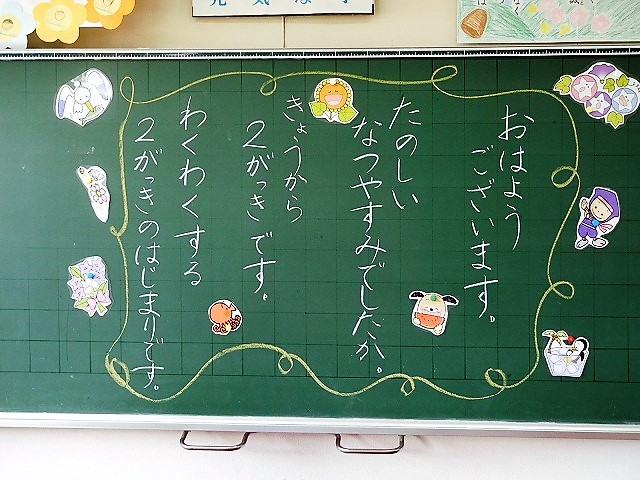 おはよう
ございます。
たのしい
なつやすみでしたか。
きょうから
2がっきです。
わくわくする
2がっきのはじまりです。